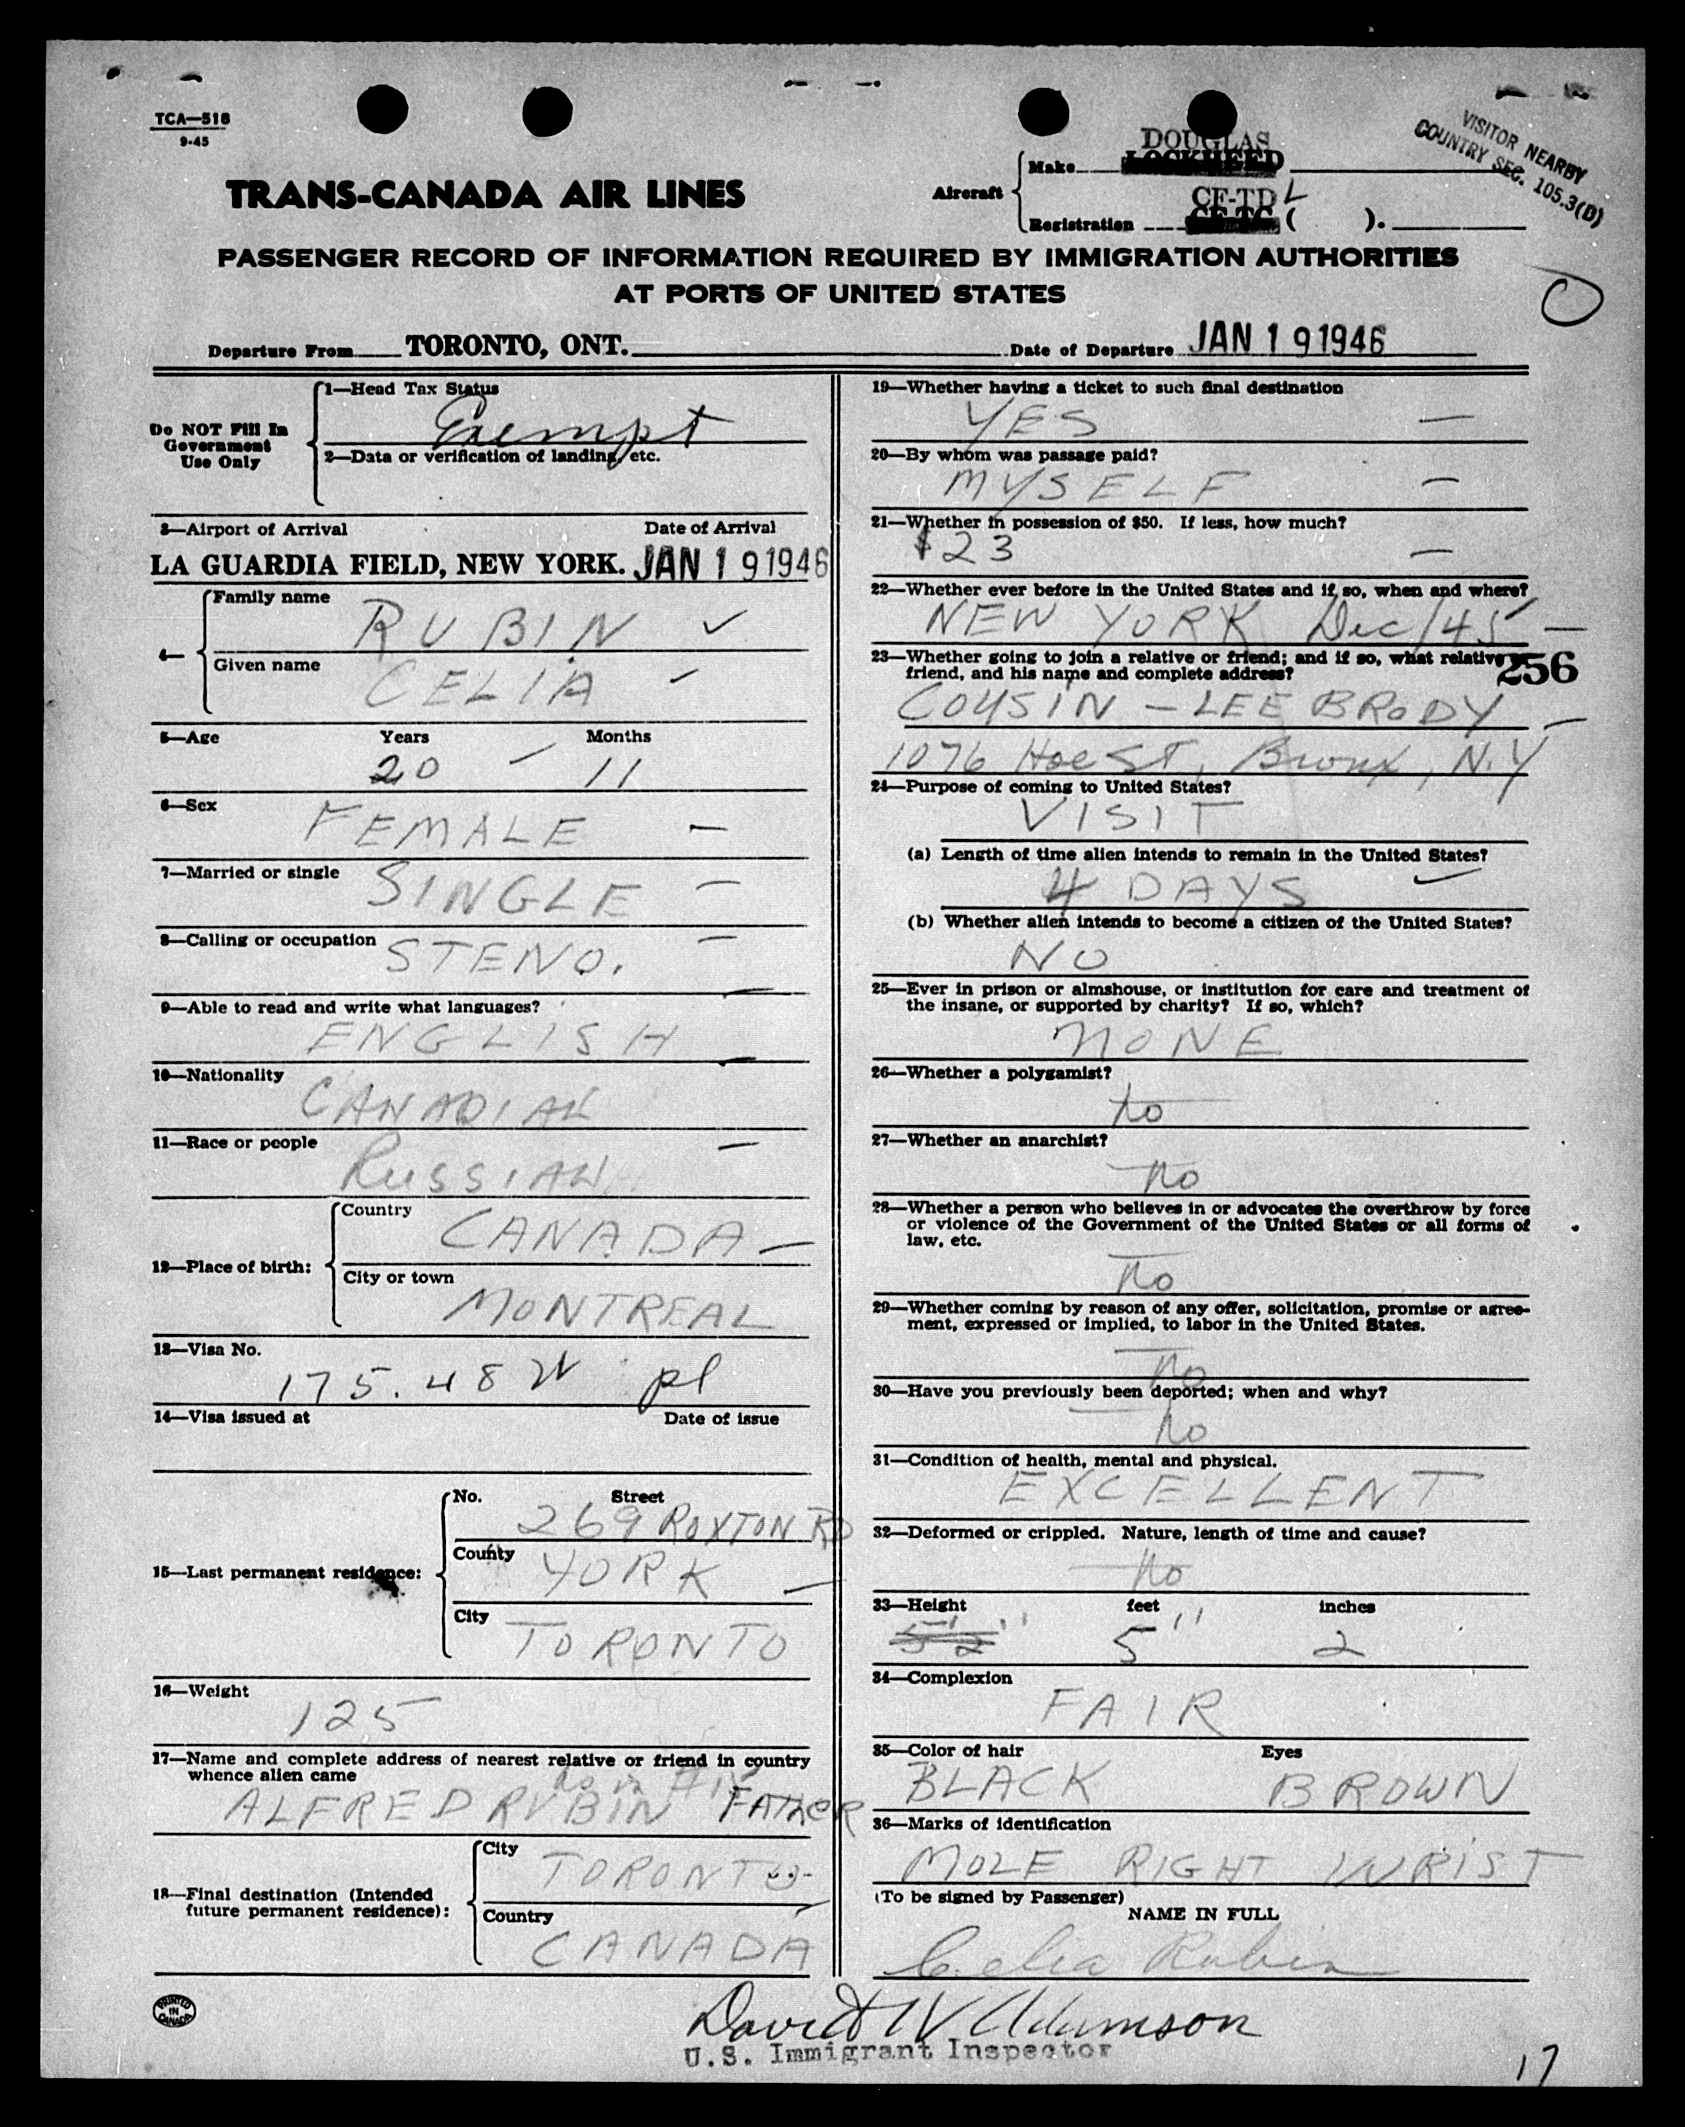 TCA—518
9-45
VISITOR NEARBY
COUNTRY SEC. 105.3(B)
TRANS-CANADA AIR LINES
Aircraft
Make DOUGLAS
LOCKHEED
Registration CF-TD L
CF-TC ( ).
PASSENGER RECORD OF INFORMATION REQUIRED BY IMMIGRATION AUTHORITIES
AT PORTS OF UNITED STATES
Departure From TORONTO, ONT. Date of Departure JAN 19 1946
Do NOT Fill In
Government
Use Only
1—Head Tax Status
Exempt
2—Data or verification of landing, etc.
3—Airport of Arrival Date of Arrival
LA GUARDIA FIELD, NEW YORK. JAN 19 1946
4—
Family name
RUBIN
Given name
CELIA
5—Age Years Months
20 11
6—Sex
FEMALE
7—Married or single
SINGLE
8—Calling or occupation
STENO.
9—Able to read and write what languages?
ENGLISH
10—Nationality
CANADIAN
11—Race or people
RUSSIAN
12—Place of birth:
Country
CANADA
City or town
MONTREAL
13—Visa No.
175.48 pl
14—Visa issued at Date of issue
15—Last permanent residence:
No. Street
269 ROXTON RD
County
YORK
City
TORONTO
16—Weight
125
17—Name and complete address of nearest relative or friend in country
whence alien came
ALFRED RUBIN FATHER
18—Final destination (Intended
future permanent residence):
City
TORONTO
Country
CANADA
PRINTED
IN
CANADA
19—Whether having a ticket to such final destination
YES
20—By whom was passage paid?
MYSELF
21—Whether in possession of $50. If less, how much?
$23
22—Whether ever before in the United States and if so, when and where?
NEW YORK Dec/45
23—Whether going to join a relative or friend; and if so, what relative or
friend, and his name and complete address?
256
COUSIN — LEE BRODY
1076 Hoe ST, Bronx, N.Y
24—Purpose of coming to United States?
VISIT
(a) Length of time alien intends to remain in the United States?
4 DAYS
(b) Whether alien intends to become a citizen of the United States?
NO
25—Ever in prison or almshouse, or institution for care and treatment of
the insane, or supported by charity? If so, which?
NONE
26—Whether a polygamist?
no
27—Whether an anarchist?
no
28—Whether a person who believes in or advocates the overthrow by force
or violence of the Government of the United States or all forms of
law, etc.
no
29—Whether coming by reason of any offer, solicitation, promise or agree-
ment, expressed or implied, to labor in the United States.
no
30—Have you previously been deported; when and why?
no
31—Condition of health, mental and physical.
EXCELLENT
32—Deformed or crippled. Nature, length of time and cause?
no
33—Height feet inches
5'2" 5" 2
34—Complexion
FAIR
35—Color of hair Eyes
BLACK BROWN
36—Marks of identification
MOLE RIGHT WRIST
(To be signed by Passenger)
NAME IN FULL
Celia Rubin
David W Adamson
U.S. Immigrant Inspector
17